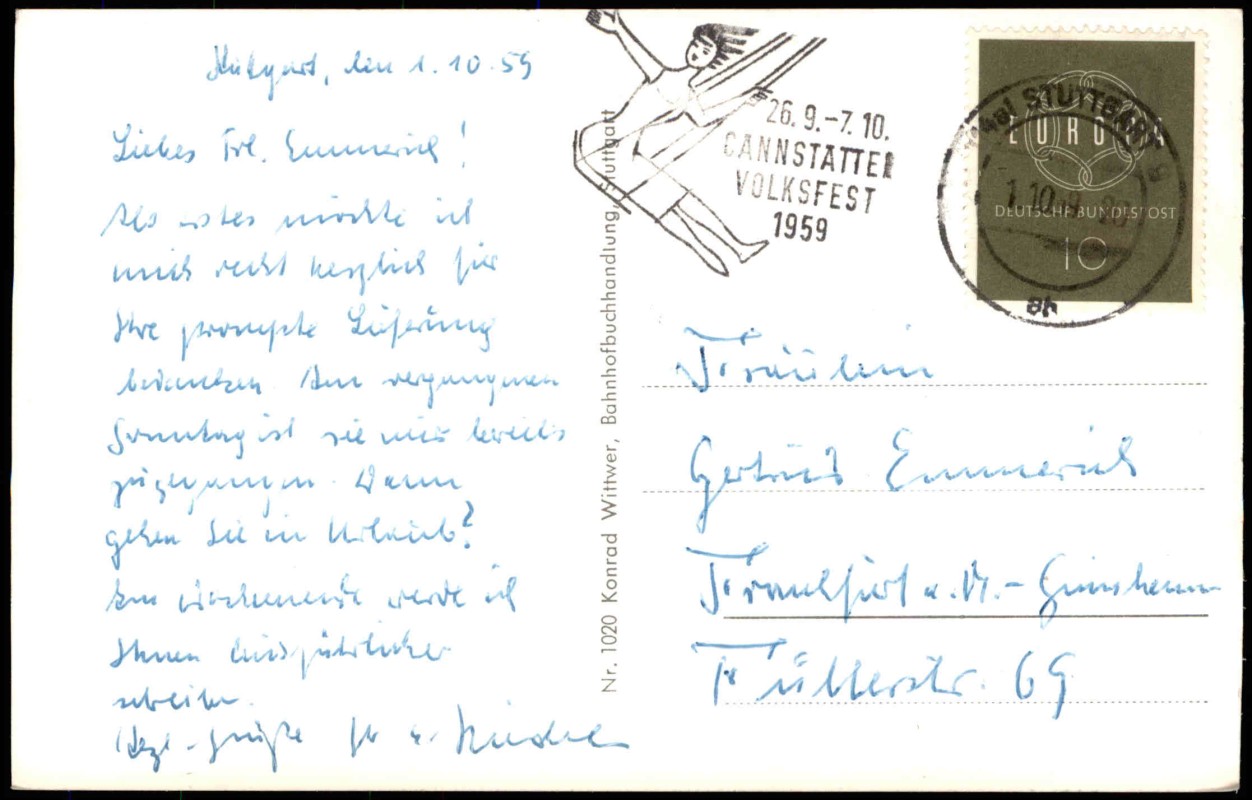 Stuttgart, den 1.10.59
Liebes Frl. Emmerich!
Als erstes möchte ich
mich recht herzlich für
Ihre prompte Lieferung
bedanken. Am vergangenen
Sonntag ist sie mir bereits
zugegangen. Wann
gehen Sie in Urlaub?
Am Wochenende werde ich
Ihnen ausführlicher
schreiben.
Herzl. Grüße
Nr. 1020 Konrad Wittwer, Bahnhofbuchhandlung, Stuttgart
26. 9.-7. 10.
CANNSTATTER
VOLKSFEST
1959
STUTTGART
EUROPA
DEUTSCHE BUNDESPOST
10
Fräulein
Gertrud Emmerich
Frankfurt a. M.-Ginnheim
Füllerstr. 69